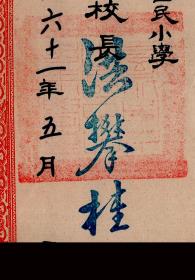 民小學
校長 洪攀桂
六十一年五月